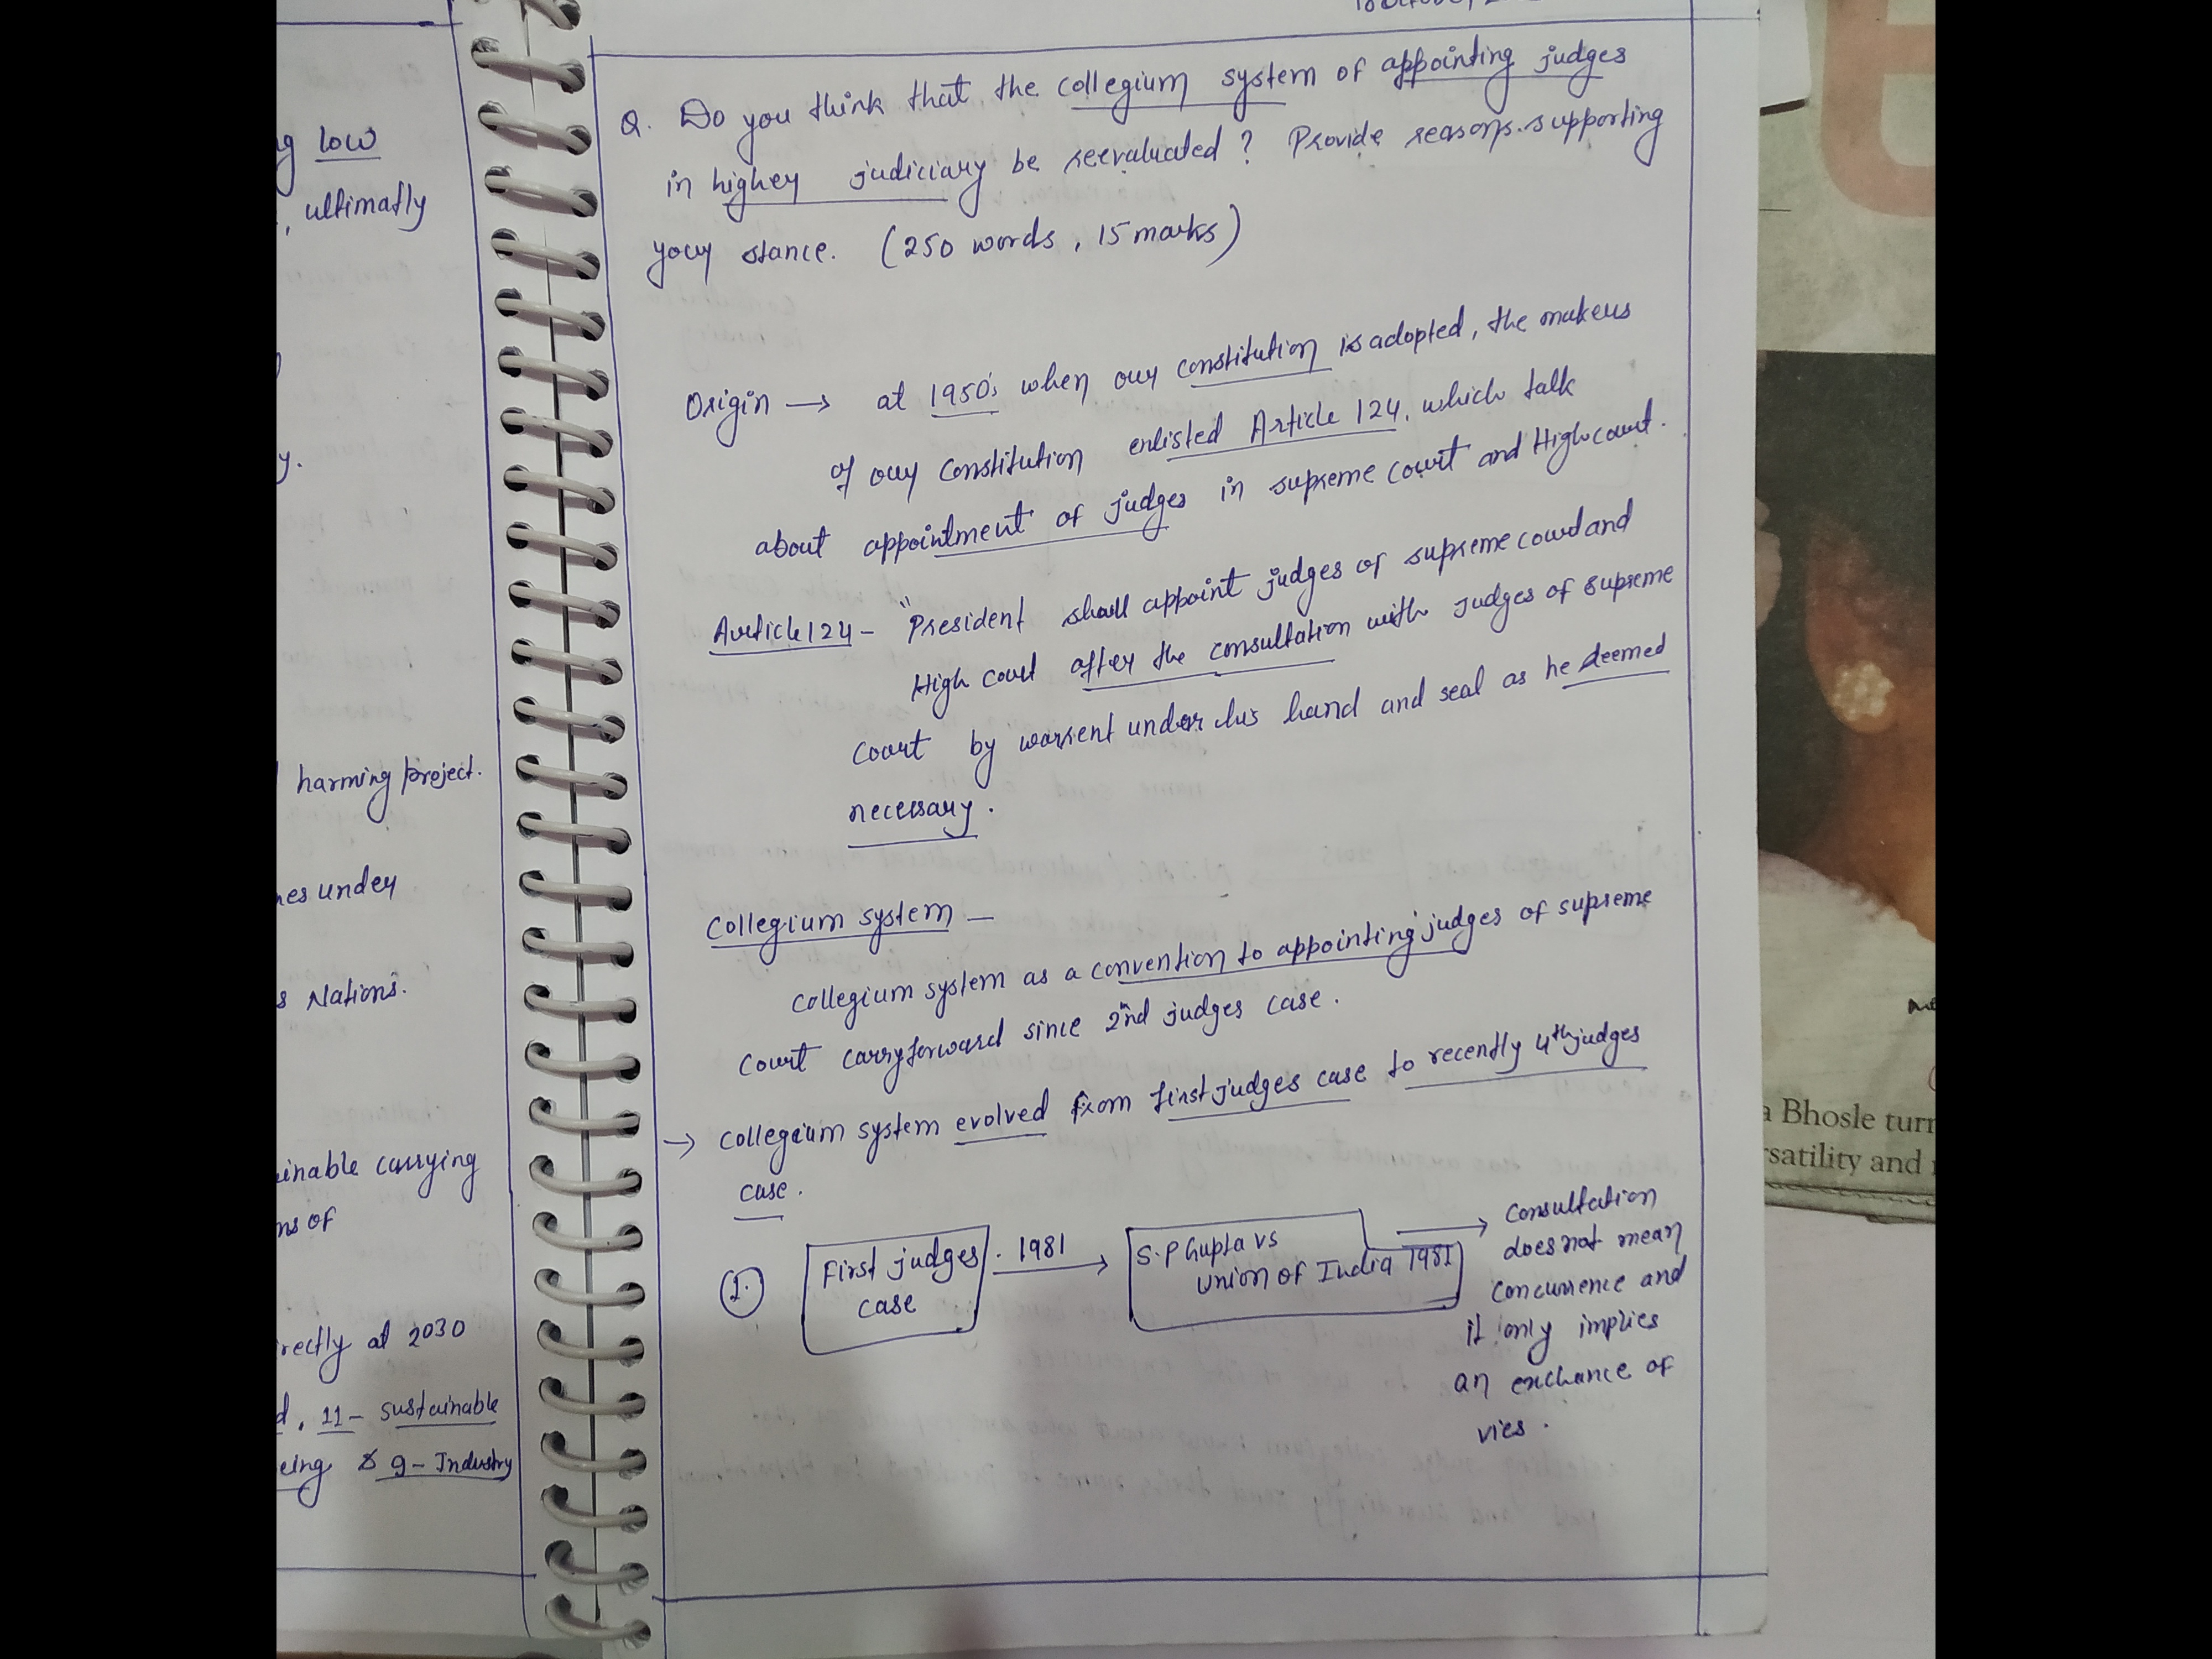 g low
, ultimatly
y.
harming project.
nes under
s Nations.
inable carrying
ns of
rectly at 2030
d, 11- sustainable
eing & 9- Industry
Q. Do you think that the collegium system of appointing judges
in higher judiciary be reevaluated? Provide reasons supporting
your stance. (250 words, 15 marks)
Origin → at 1950's when our constitution is adopted, the makers
of our constitution enlisted Article 124, which talk
about appointment of judges in supreme court and High court.
Article 124 - "President shall appoint judges of supreme court and
High court after the consultation with judges of supreme
court by warrent under his hand and seal as he deemed
necessary.
Collegium system -
collegium system as a convention to appointing judges of supreme
court carryforward since 2nd judges case.
→ collegium system evolved from first judges case to recently 4th judges
case.
1. First judges case 1981 → S.P Gupta vs Union of India 1981 →
consultation
does not mean
concurrence and
it only implies
an exchance of
vies.
a Bhosle turn
rsatility and